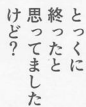 とっくに
終ったと
思ってました
けど？